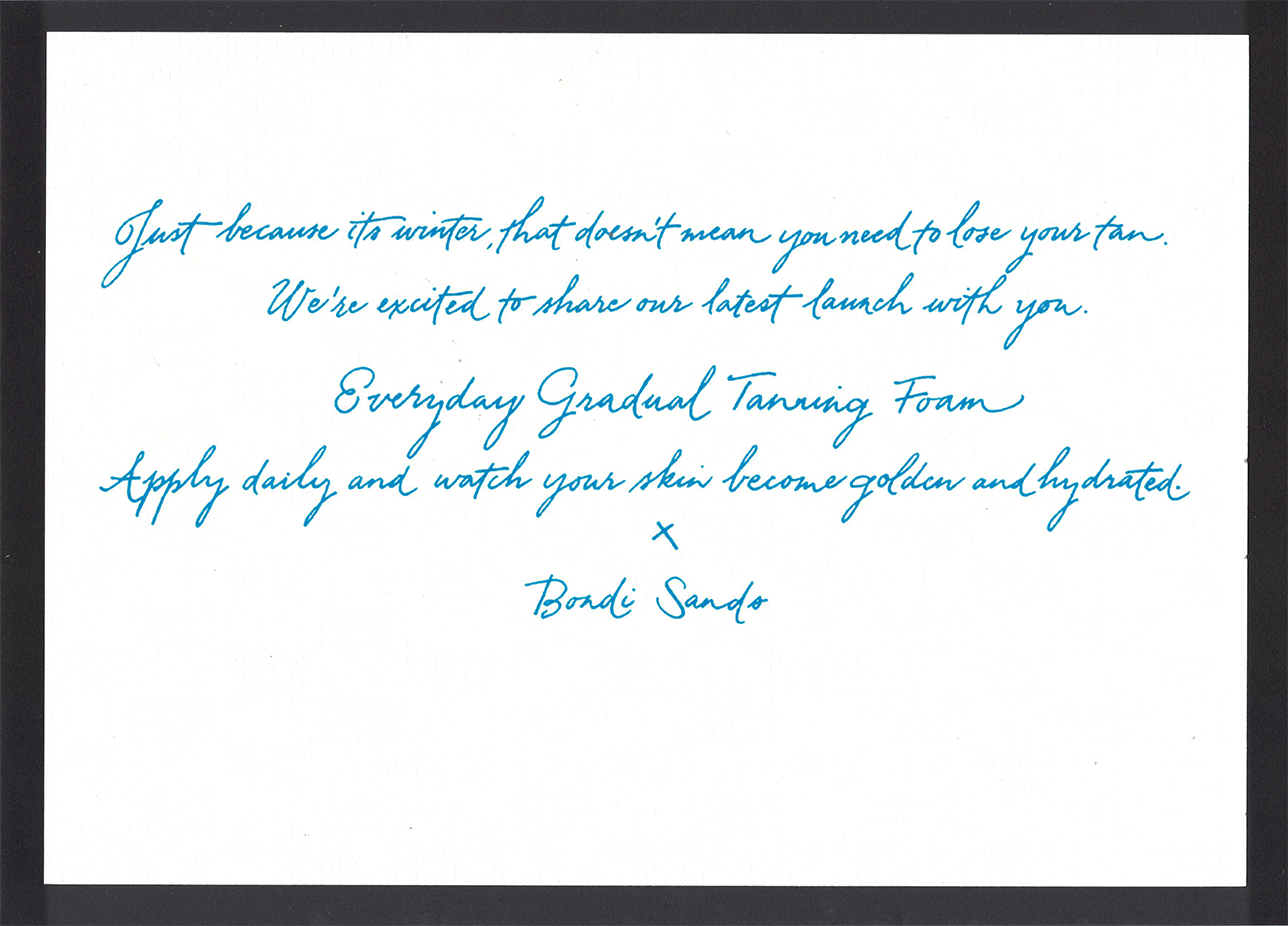 Just because its winter, that doesn't mean you need to lose your tan.
We're excited to share our latest launch with you.
Everyday Gradual Tanning Foam
Apply daily and watch your skin become golden and hydrated.
x
Bondi Sands